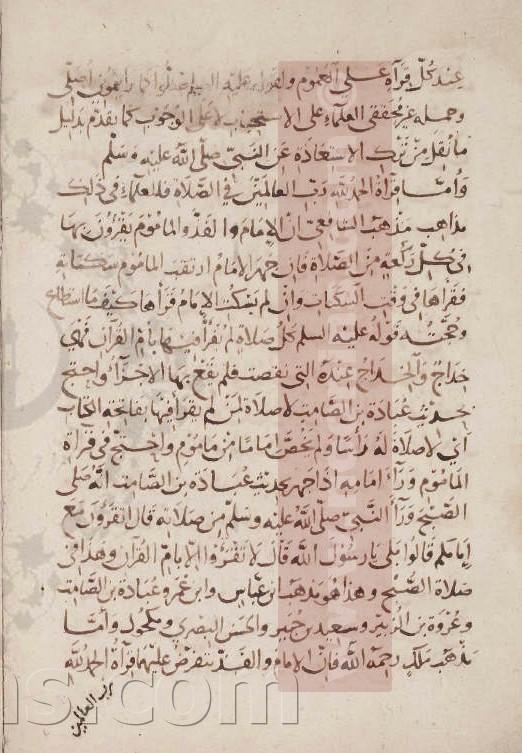 عند كل قراة على العموم ولقوله عليه السلم صلوا كما رايتموني اصلي
وحمله غير محققى العلماء على الاستحباب لا على الوجوب كما يقدم بدليل
ما نقل من ترك الاستعاذة عن النبي صلى الله عليه وسلم
وأما قراة الحمد لله رب العالمين في الصلاة فللعلماء في ذلك
مذاهب مذهب الشافعى ان الامام والفذ والماموم يقرؤن بها
في كل ركعة من الصلاة فان جهر الامام ارتقب الماموم سكتاته
فقراها في وقت السكتات وان لم يسكت الامام قراها كيف ما استطاع
وحجته قوله عليه السلم كل صلاة لم يقرأ فيها بأم القران فهي
خداج والخداج عنده التي نقصت فلم يقع بها الاجزاء واحتج
بحديث عبادة بن الصامت لا صلاة لمن لم يقرا فيها بفاتحة الكتاب
اي لا صلاة له رأسا ولم يخص اماما من ماموم واحتج في قراة
الماموم وراء امامه اذا جهر بحديث عبادة بن الصامت انه صلى
الصبح وراء النبي صلى الله عليه وسلم من صلاته قال اتقرؤن مع
إمامكم قالوا بلى يا رسول الله قال لا تقرؤا الا بام القرآن وهذا في
صلاة الصبح وهذا هو مذهب ابن عباس وابن عمر وعبادة بن الصامت
وعروة بن الزبير وسعيد بن جبير والحسن البصري ومكحول وأما
مذهب ملك رحمه الله فان الامام والفذ يتفرض عليهما قراة الحمد لله
رب العالمين
ns.com